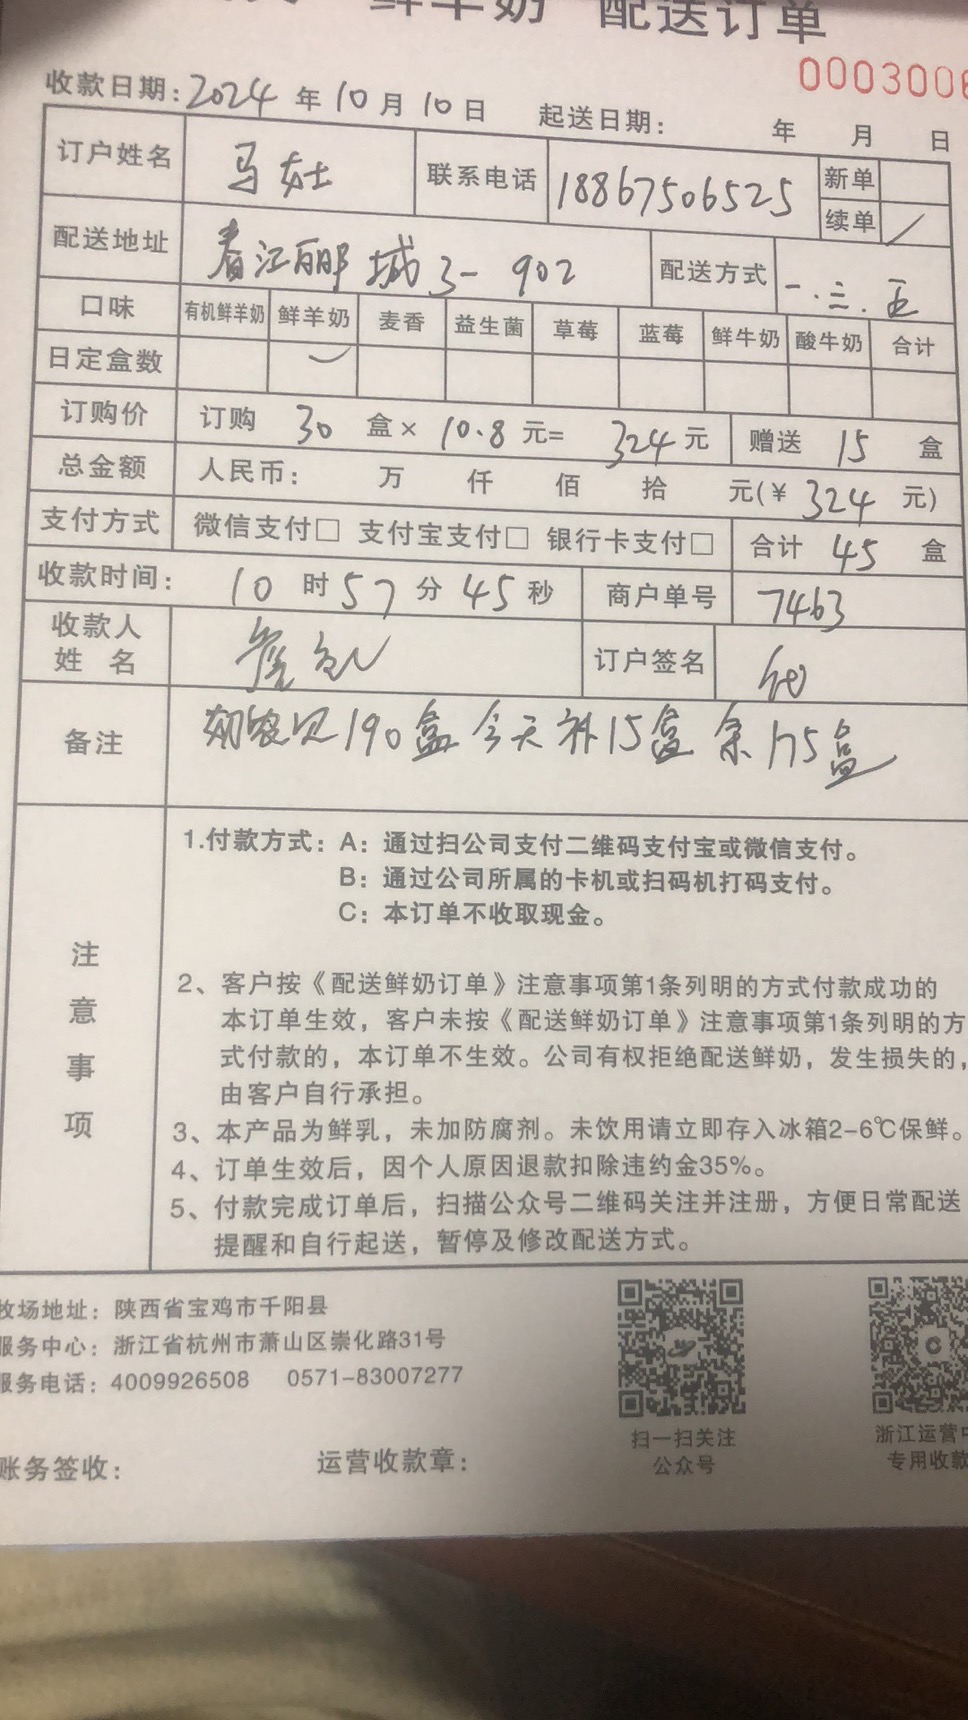 鲜羊奶 配送订单
0003006
收款日期:2024年10月10日 起送日期: 年 月 日
订户姓名 马女士 联系电话 18867506525 新单
续单 /
配送地址 春江丽城3-902 配送方式 一.三.五
口味 有机鲜羊奶 鲜羊奶 麦香 益生菌 草莓 蓝莓 鲜牛奶 酸牛奶 合计
日定盒数
订购价 订购 30 盒× 10.8 元= 324元 赠送 15 盒
总金额 人民币: 万 仟 佰 拾 元(¥ 324 元)
支付方式 微信支付□ 支付宝支付□ 银行卡支付□ 合计 45 盒
收款时间: 10 时 57 分 45 秒 商户单号 7463
收款人
姓 名
订户签名
备注 190盒 今天补15盒 余175盒
注意事项
1.付款方式:A:通过扫公司支付二维码支付宝或微信支付。
B:通过公司所属的卡机或扫码机打码支付。
C:本订单不收取现金。
2、客户按《配送鲜奶订单》注意事项第1条列明的方式付款成功的
本订单生效,客户未按《配送鲜奶订单》注意事项第1条列明的方
式付款的,本订单不生效。公司有权拒绝配送鲜奶,发生损失的,
由客户自行承担。
3、本产品为鲜乳,未加防腐剂。未饮用请立即存入冰箱2-6℃保鲜。
4、订单生效后,因个人原因退款扣除违约金35%。
5、付款完成订单后,扫描公众号二维码关注并注册,方便日常配送
提醒和自行起送,暂停及修改配送方式。
牧场地址:陕西省宝鸡市千阳县
服务中心:浙江省杭州市萧山区崇化路31号
服务电话:4009926508 0571-83007277
扫一扫关注
公众号
浙江运营中
专用收款
账务签收: 运营收款章: